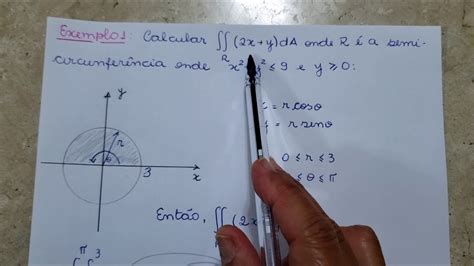 Exemplo 1: Calcular ∬ (2x+y) dA onde R é a semi-
R
circunferência onde x² y² ≤ 9 e y ≥ 0:
y
= r cosθ
= r senθ
r
θ
3
x
0 ≤ r ≤ 3
≤ θ ≤ π
Então, ∬ (2x
π 3
∫ ∫